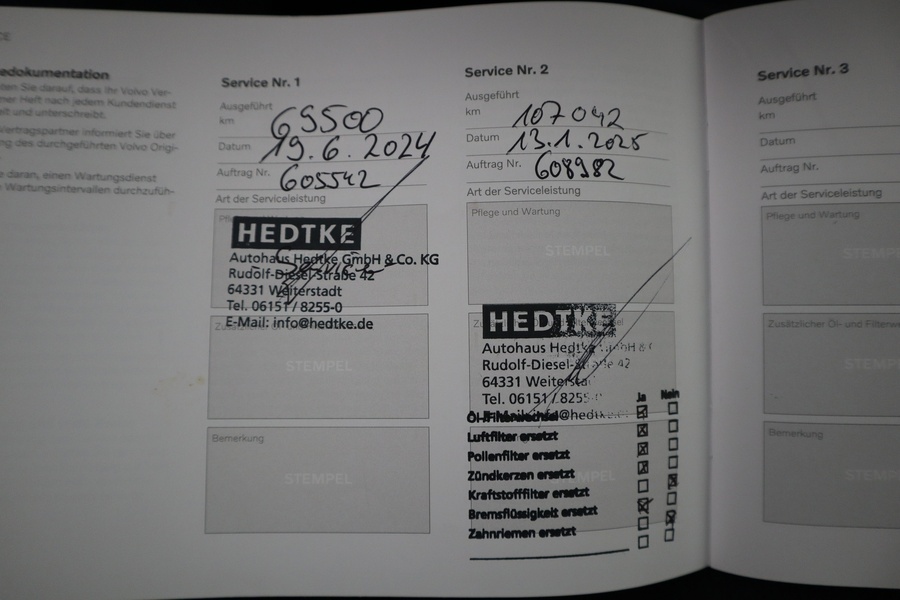 edokumentation
ten Sie darauf, dass Ihr Volvo Ver-
ner Heft nach jedem Kundendienst
elt und unterschreibt.
Vertragspartner informiert Sie über
ng des durchgeführten Volvo Origi-
e daran, einen Wartungsdienst
Wartungsintervallen durchzufüh-
Service Nr. 1
Ausgeführt
km 69500
Datum 19.6.2024
Auftrag Nr. 605542
Art der Serviceleistung
HEDTKE
Autohaus Hedtke GmbH & Co. KG
Rudolf-Diesel-Straße 42
64331 Weiterstadt
Tel. 06151 / 8255-0
E-Mail: info@hedtke.de
STEMPEL
Bemerkung
STEMPEL
Service Nr. 2
Ausgeführt
km 107042
Datum 13.1.2025
Auftrag Nr. 608982
Art der Serviceleistung
Pflege und Wartung
STEMPEL
HEDTKE
Autohaus Hedtke GmbH &
Rudolf-Diesel-Straße 42
64331 Weiterstadt
Tel. 06151 / 8255-
E-Mail: info@hedtke
Ja Nein
Öl-/Filterwechsel
Luftfilter ersetzt
Pollenfilter ersetzt
Zündkerzen ersetzt
STEMPEL
Kraftstofffilter ersetzt
Bremsflüssigkeit ersetzt
Zahnriemen ersetzt
Service Nr. 3
Ausgeführt
km
Datum
Auftrag Nr.
Art der Serviceleistung
Pflege und Wartung
STEMPEL
Zusätzlicher Öl- und Filterwe
STEMPEL
Bemerkung
STEMPEL